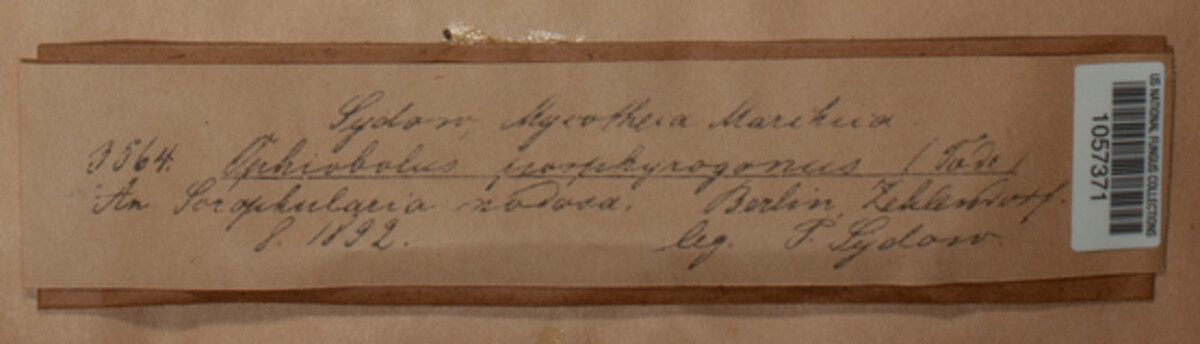 Sydow, Mycotheca Marchica.
3564. Ophiobolus porphyrogonus (Tode)
An Scrophularia nodosa. Berlin, Zehlendorf.
8. 1892. leg. P. Sydow.
US NATIONAL FUNGUS COLLECTIONS
1057371